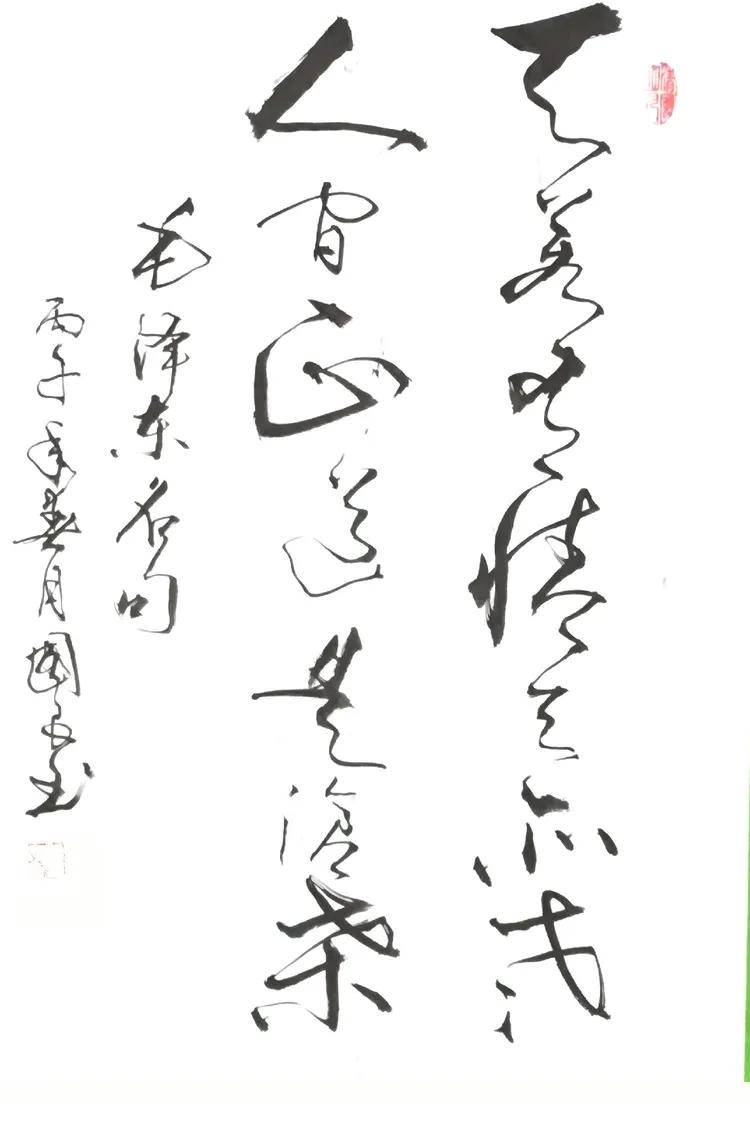 天若有情天亦老
人间正道是沧桑
毛泽东名句
丙子年春月国
书